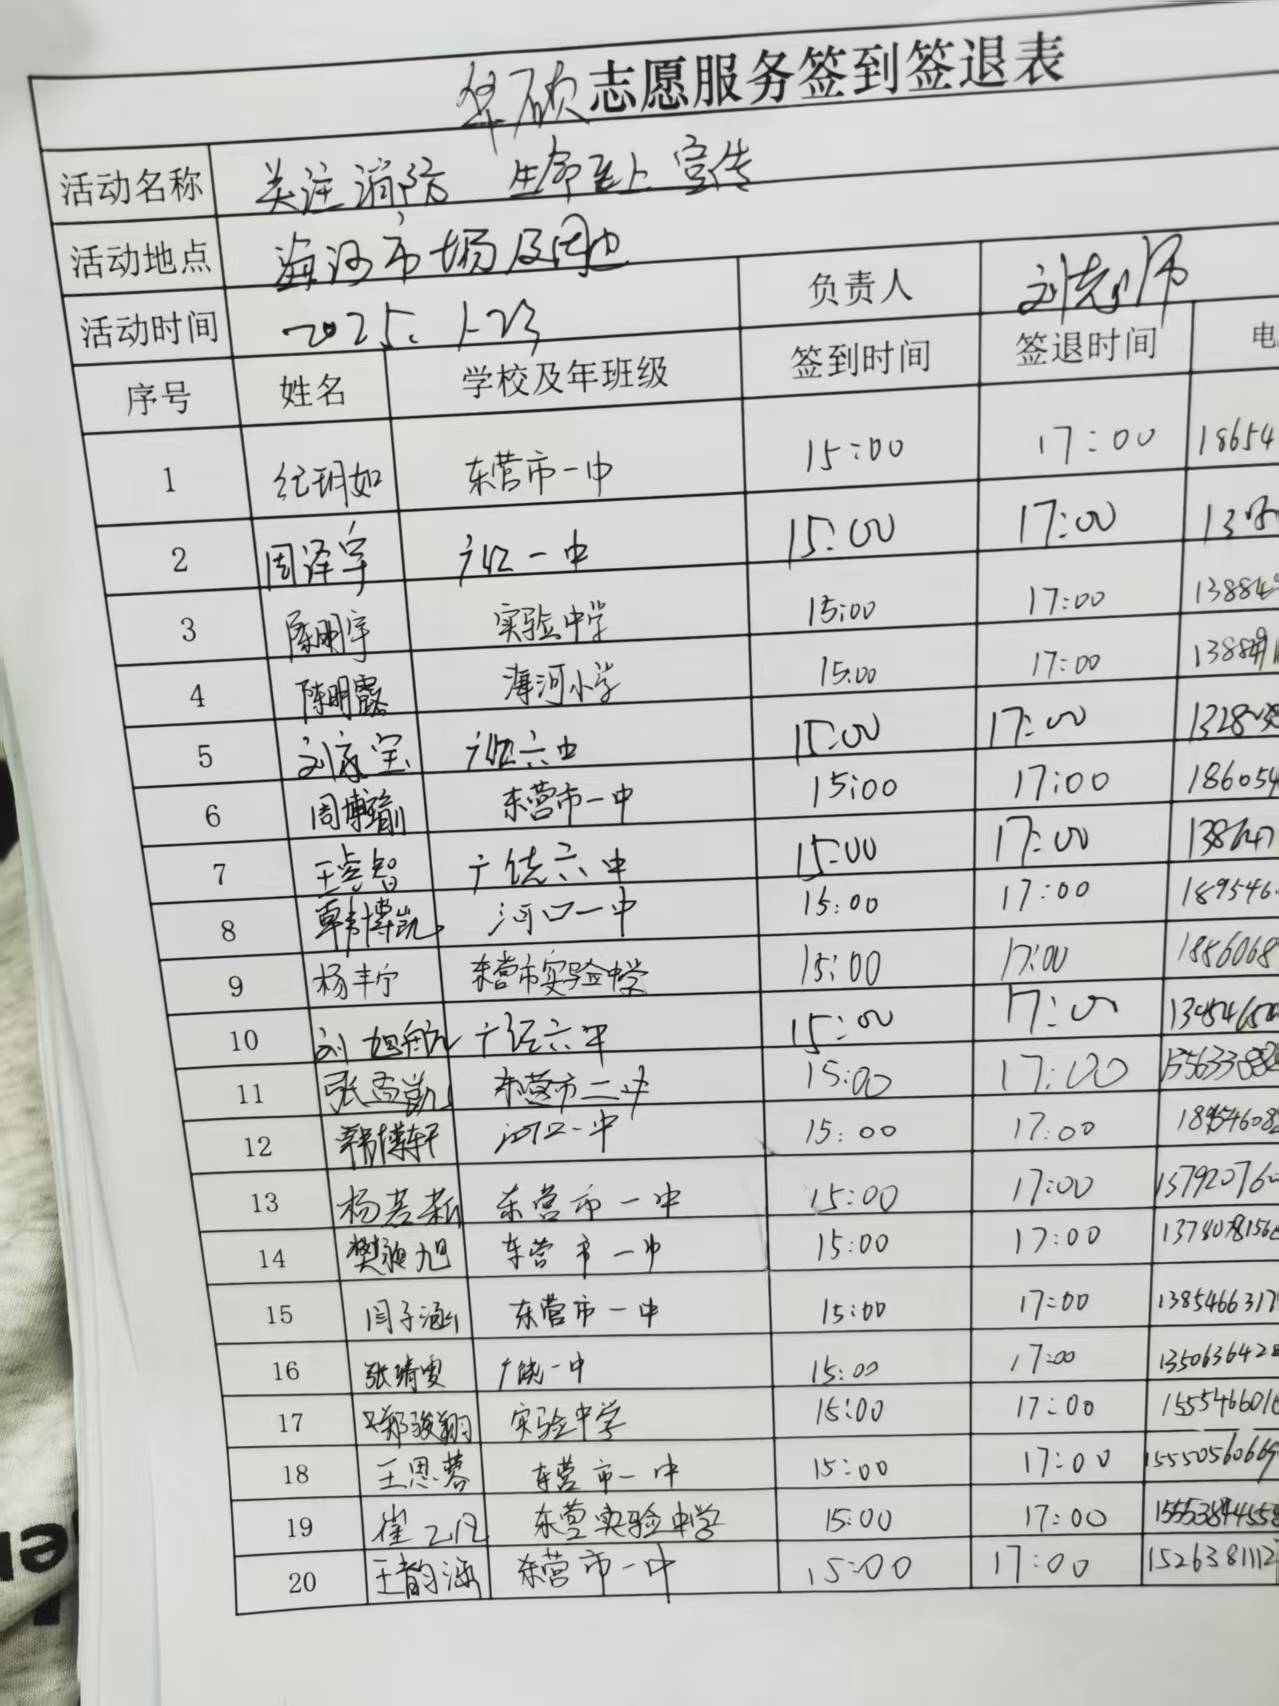 华硕志愿服务签到签退表
活动名称 关注消防 生命至上宣传
活动地点 海河市场及周边
活动时间 2025.1-23 负责人 刘老师
序号 姓名 学校及年班级 签到时间 签退时间 电
1 纪玥如 东营市一中 15:00 17:00 18654
2 周泽宇 广饶一中 15:00 17:00
3 陈明宇 实验中学 15:00 17:00 13884
4 陈明露 海河小学 15:00 17:00
5 刘家宝 广饶六中 15:00 17:00
6 周博瀚 东营市一中 15:00 17:00 186054
7 王睿智 广饶六中 15:00 17:00
8 韩博凯 河口一中 15:00 17:00 1895460
9 杨丰宁 东营市实验中学 15:00 17:00 1856068
10 刘旭航 广饶六中 15:00 17:00
11 东营市二中 15:00 17:00
12 韩博轩 河口一中 15:00 17:00
13 杨若新 东营市一中 15:00 17:00 13792076
14 樊迪旭 东营市一中 15:00 17:00
15 闫子涵 东营市一中 15:00 17:00 1385466317
16 张靖雯 广饶一中 15:00 17:00 1350636428
17 郑骏翔 实验中学 15:00 17:00 155546601
18 王思蓉 东营市一中 15:00 17:00 1555056066
19 崔 东营实验中学 15:00 17:00
20 王韵涵 东营市一中 15:00 17:00 1526381112
er